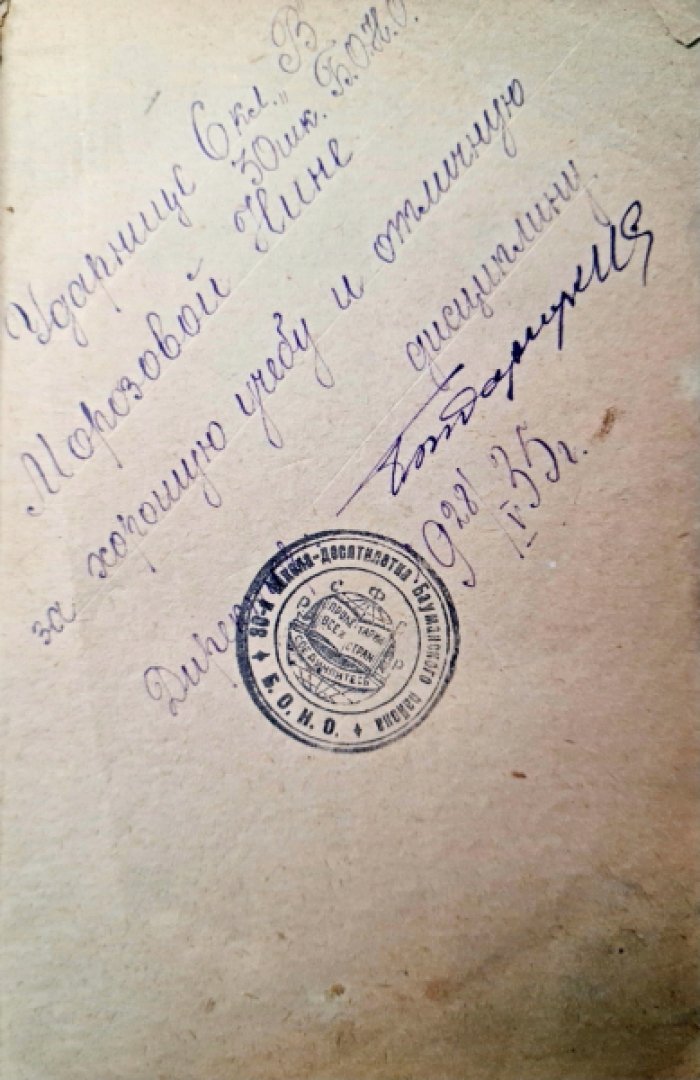 Ударнице 6 кл. „В
30 шк. Б.О.Н.О.
Морозовой Нине
за хорошую учебу и отличную
дисциплину.
Директор
9 28/V 35 г.
30-я Школа-десятилетка Бауманского района
Б. О. Н. О.
Р С Ф С Р
ПРОЛЕТАРИИ
ВСЕХ СТРАН
СОЕДИНЯЙТЕСЬ